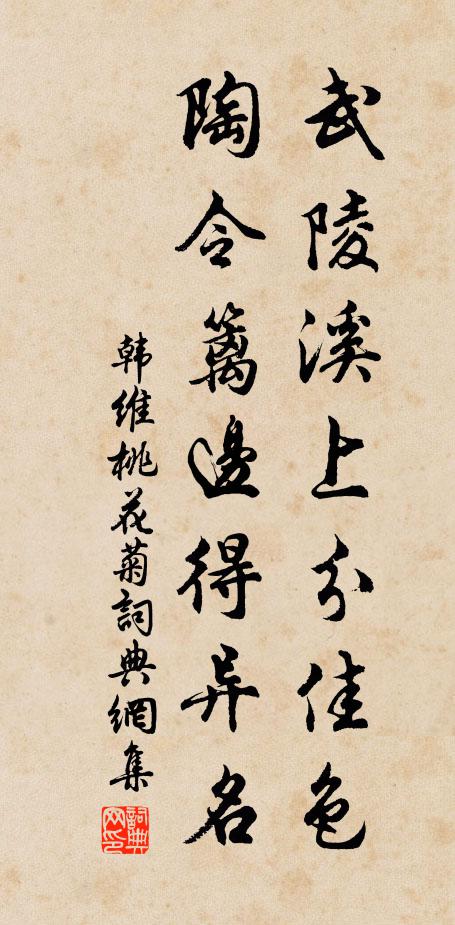 武陵溪上分佳色
陶令篱邊得异名
韩维桃花菊詞典網集
詞典网印